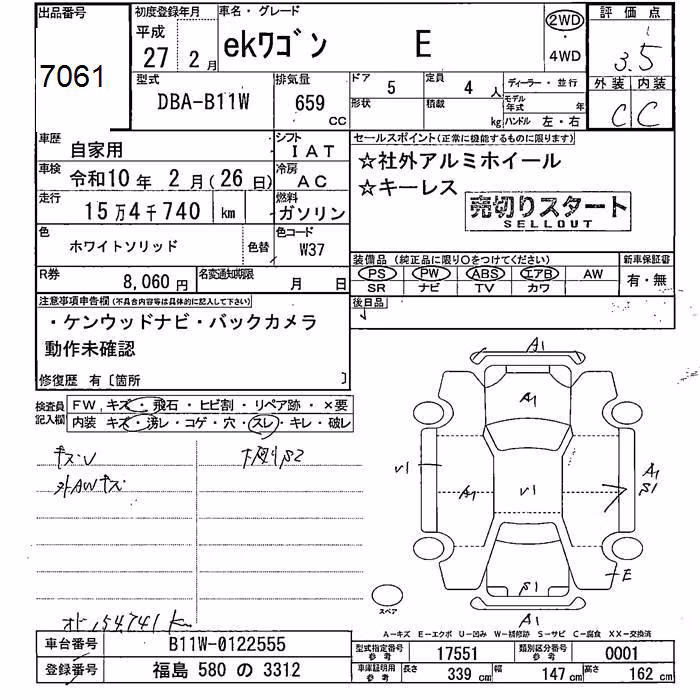 出品番号
7061
初度登録年月
平成
27 2 月
車名・グレード
ekワゴン E
2WD
・
4WD
評価点
3.5
外装 内装
C C
型式
DBA-B11W
排気量
659
CC
ドア
5
定員
4 人
形状
積載
kg
ディーラー・並行
モデル年式 年
ハンドル 左・右
車歴
自家用
シフト
IAT
車検
令和10 年 2 月(26 日)
冷房
AC
走行
15 万 4 千 740 km
燃料
ガソリン
色
ホワイトソリッド
色替
色コード
W37
R券
8,060 円
名変通知期限
月 日
セールスポイント(正常に機能するものに限ります)
☆社外アルミホイール
☆キーレス
売切りスタート
SELLOUT
装備品(純正品に限り○をつけてください)
新車保証書
PS PW ABS エアB AW
SR ナビ TV カワ
有・無
後日品
注意事項申告欄(不具合内容等は具体的に記入して下さい)
・ケンウッドナビ・バックカメラ
動作未確認
修復歴 有〔箇所 〕
検査員記入欄
FW,キズ・飛石・ヒビ割・リペア跡・×要
内装 キズ・汚レ・コゲ・穴・スレ・キレ・破レ
キズU
外AWキズ
下廻りS2
オド154,741 km
A1
A1
V1
A1
V1
A1
S1
S1
E
A1
スペア
A-キズ E-エクボ U-凹み W-補修跡 S-サビ C-腐食 XX-交換済
車台番号
B11W-0122555
登録番号
福島 580 の 3312
型式指定番号
参考
17551
類別区分番号
参考
0001
車庫証明用
参考
長さ 339 cm 幅 147 cm 高さ 162 cm